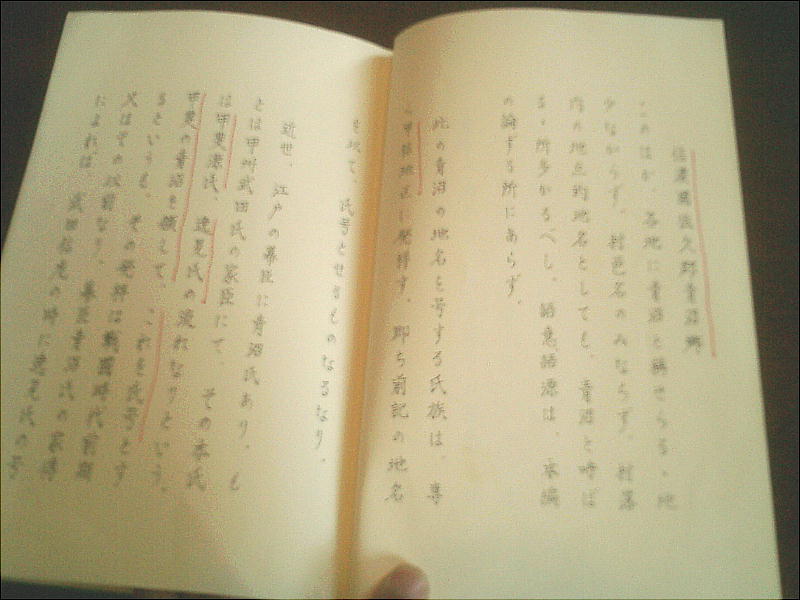 信濃国佐久郡青沼郷
このほか、各地に青沼と称せらる、地
少なからず。村邑名のみならず、村落
内の地点的地名としても、青沼と呼ば
る、所多かるべし。語意語源は、本編
の論ずる所にあらず。
此の青沼の地名を号する氏族は、専
甲斐地区に発祥す。即ち前記の地名
を以て、氏号とせるものなるなり。
近世、江戸の幕臣に青沼氏あり。も
とは甲州武田氏の家臣にて、その本氏
は甲斐源氏、逸見氏の流れなりという。
甲斐の青沼を領して、これを氏号とす
るというも、その発祥は戦国時代前期
又はその以前なり。幕臣青沼氏の家譜
によれば、武田信虎の時に逸見氏の号